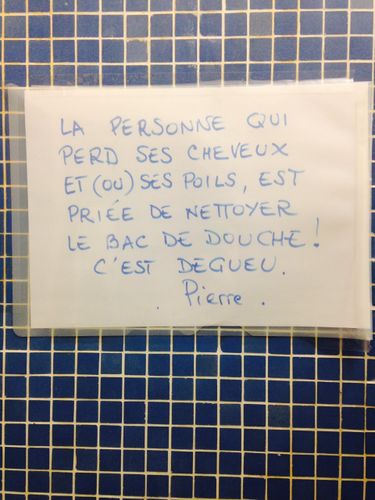 LA PERSONNE QUI
PERD SES CHEVEUX
ET (OU) SES POILS, EST
PRIÉE DE NETTOYER
LE BAC DE DOUCHE !
C'EST DEGUEU.
. Pierre .